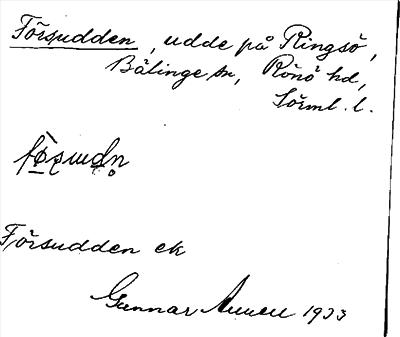 Försudden, udde på Ringsö,
Bälinge sn, Rönö hd,
Sörml. l.
Försudden ek
Gunnar 1933